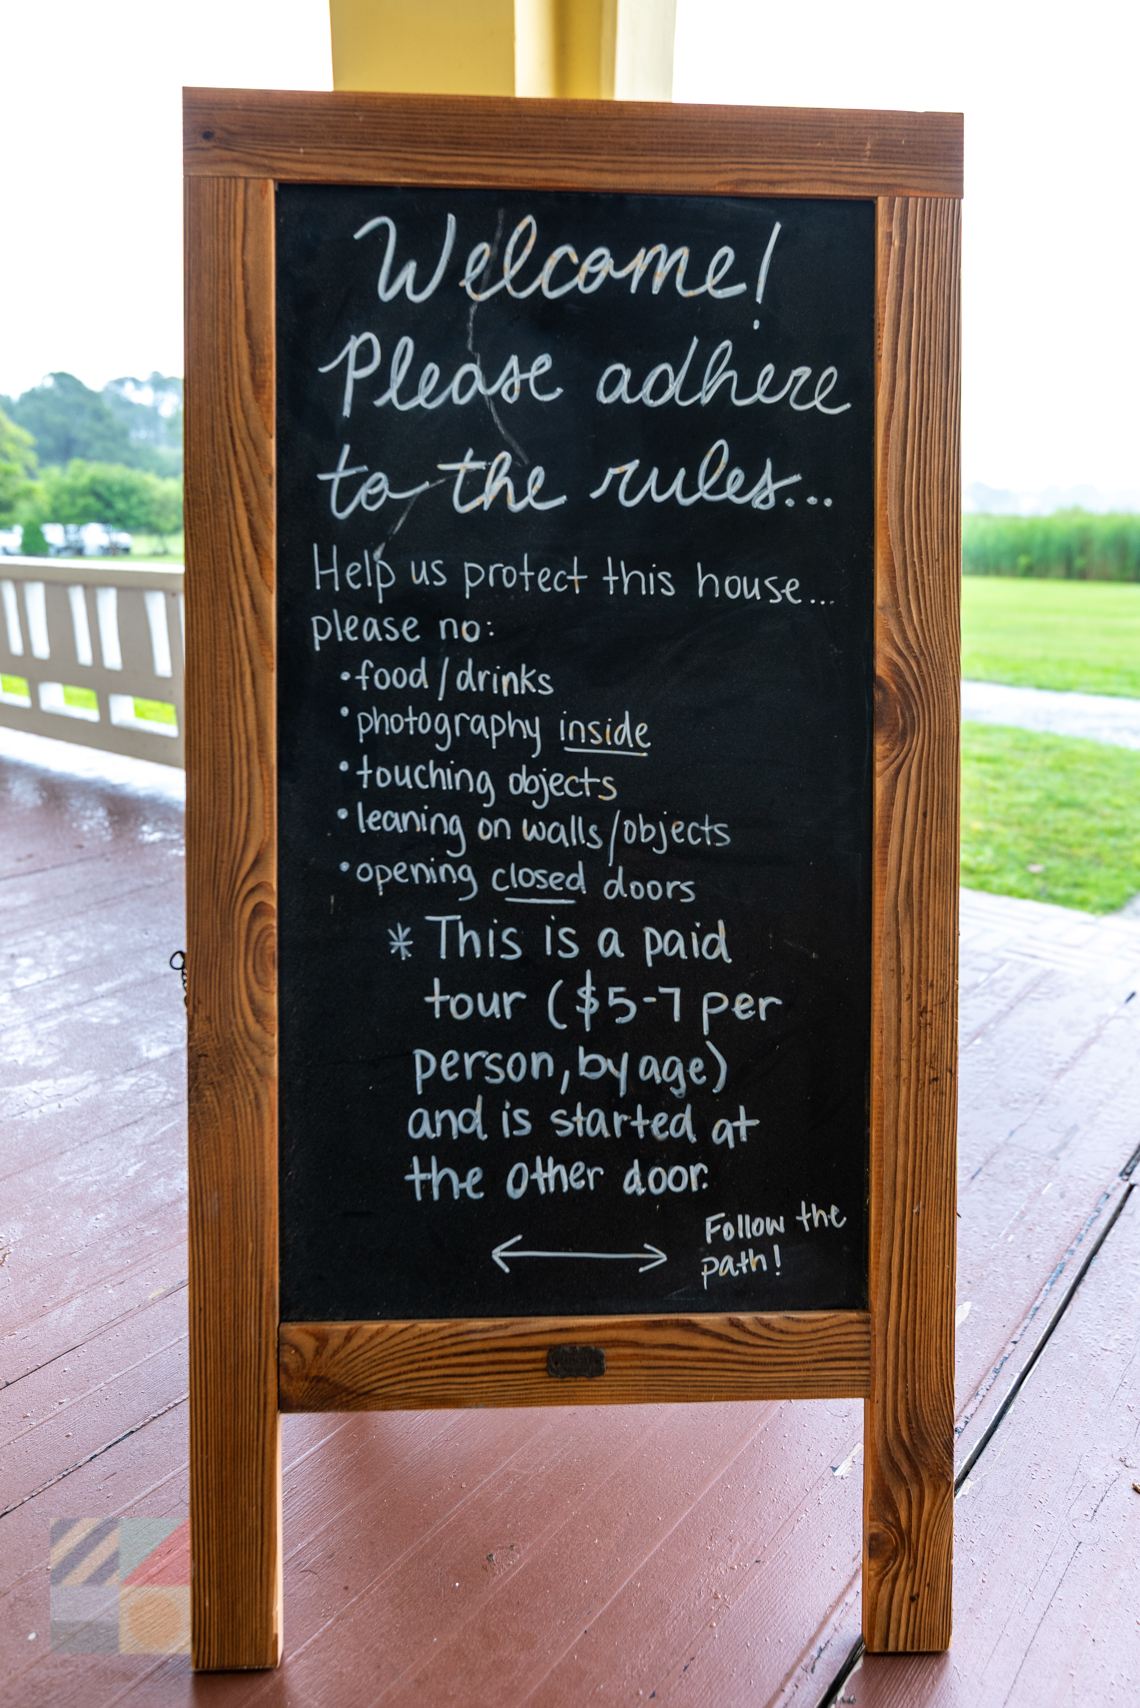 Welcome!
Please adhere
to the rules...
Help us protect this house...
please no:
•food/drinks
•photography inside
•touching objects
•leaning on walls/objects
•opening closed doors
* This is a paid
tour ($5-7 per
person, by age)
and is started at
the other door.
Follow the
path!